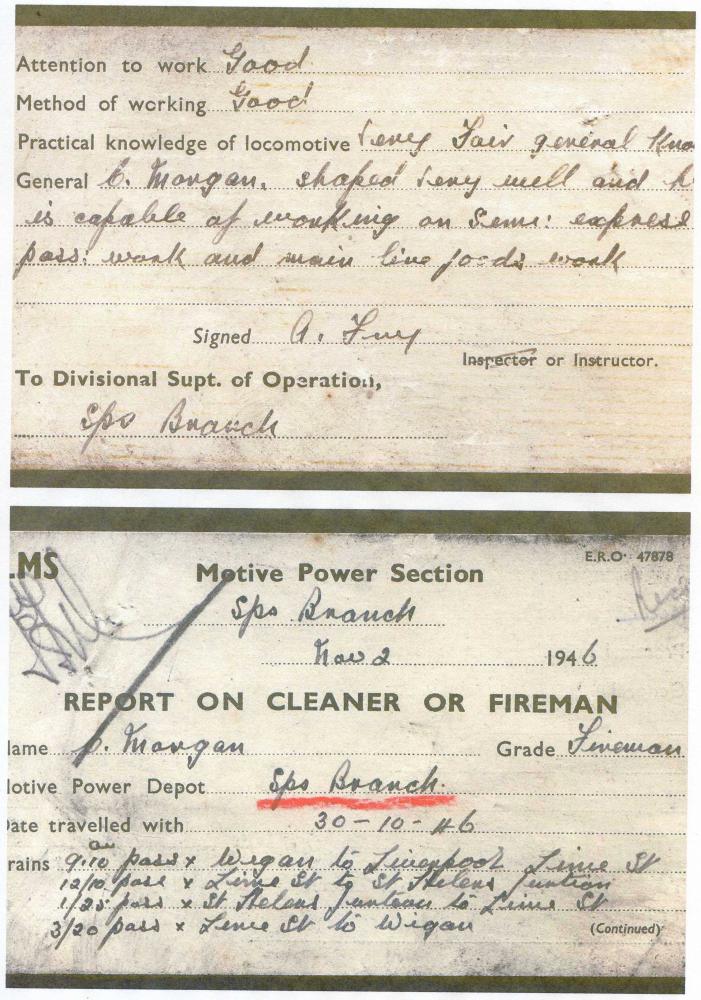 Attention to work Good
Method of working Good
Practical knowledge of locomotive Very Fair general Kno
General C. Morgan, shaped very well and h
is capable of working on Semi: express
pass: work and main line goods work
Signed A. Fury
Inspector or Instructor.
To Divisional Supt. of Operation,
Sps Branch
.MS
E.R.O. 47878
Motive Power Section
Sps Branch
Nov 2 1946
REPORT ON CLEANER OR FIREMAN
lame C. Morgan Grade Fireman
lotive Power Depot Sps Branch.
ate travelled with 30-10-46
rains 9.10 am pass x Wigan to Liverpool Lime St
12/10 pass x Lime St to St Helens Junction
1/25 pass x St Helens Junction to Lime St
3/20 pass x Lime St to Wigan
(Continued)